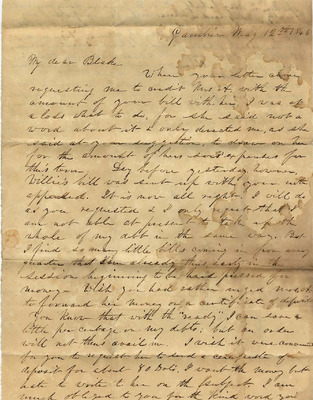 Gambier May 12th 1846
My dear Blake
When your letter came
requesting me to credit Mrs A with the
amount of your bill with her, I was at
a loss what to do, for she said not a
word about it & only directed me, as she
said at your suggestion to draw on her
for the amount of her son's expenses for
this term. Day before yesterday however,
Willie's bill was sent up with your
appended. It is now all right, I will do
as you requested & I only regret that I
am not able at present to take up the
whole of my debt in the same way. But
I find so many little bills coming in from every
quarter that I am already thus early in the
session beginning to be hard pressed for
money. Wish you had rather urged
to forward her money or a certificate of deposit
You know that with the "ready" I can save a
little per centage on my debts; but an order
will not thus avail me. I wish it were convenient
for you to request her to send a certificate of
deposit for about 80 Dols. I want the money but
hate to write to her on the subject. I am
much obliged to you for the kind word you